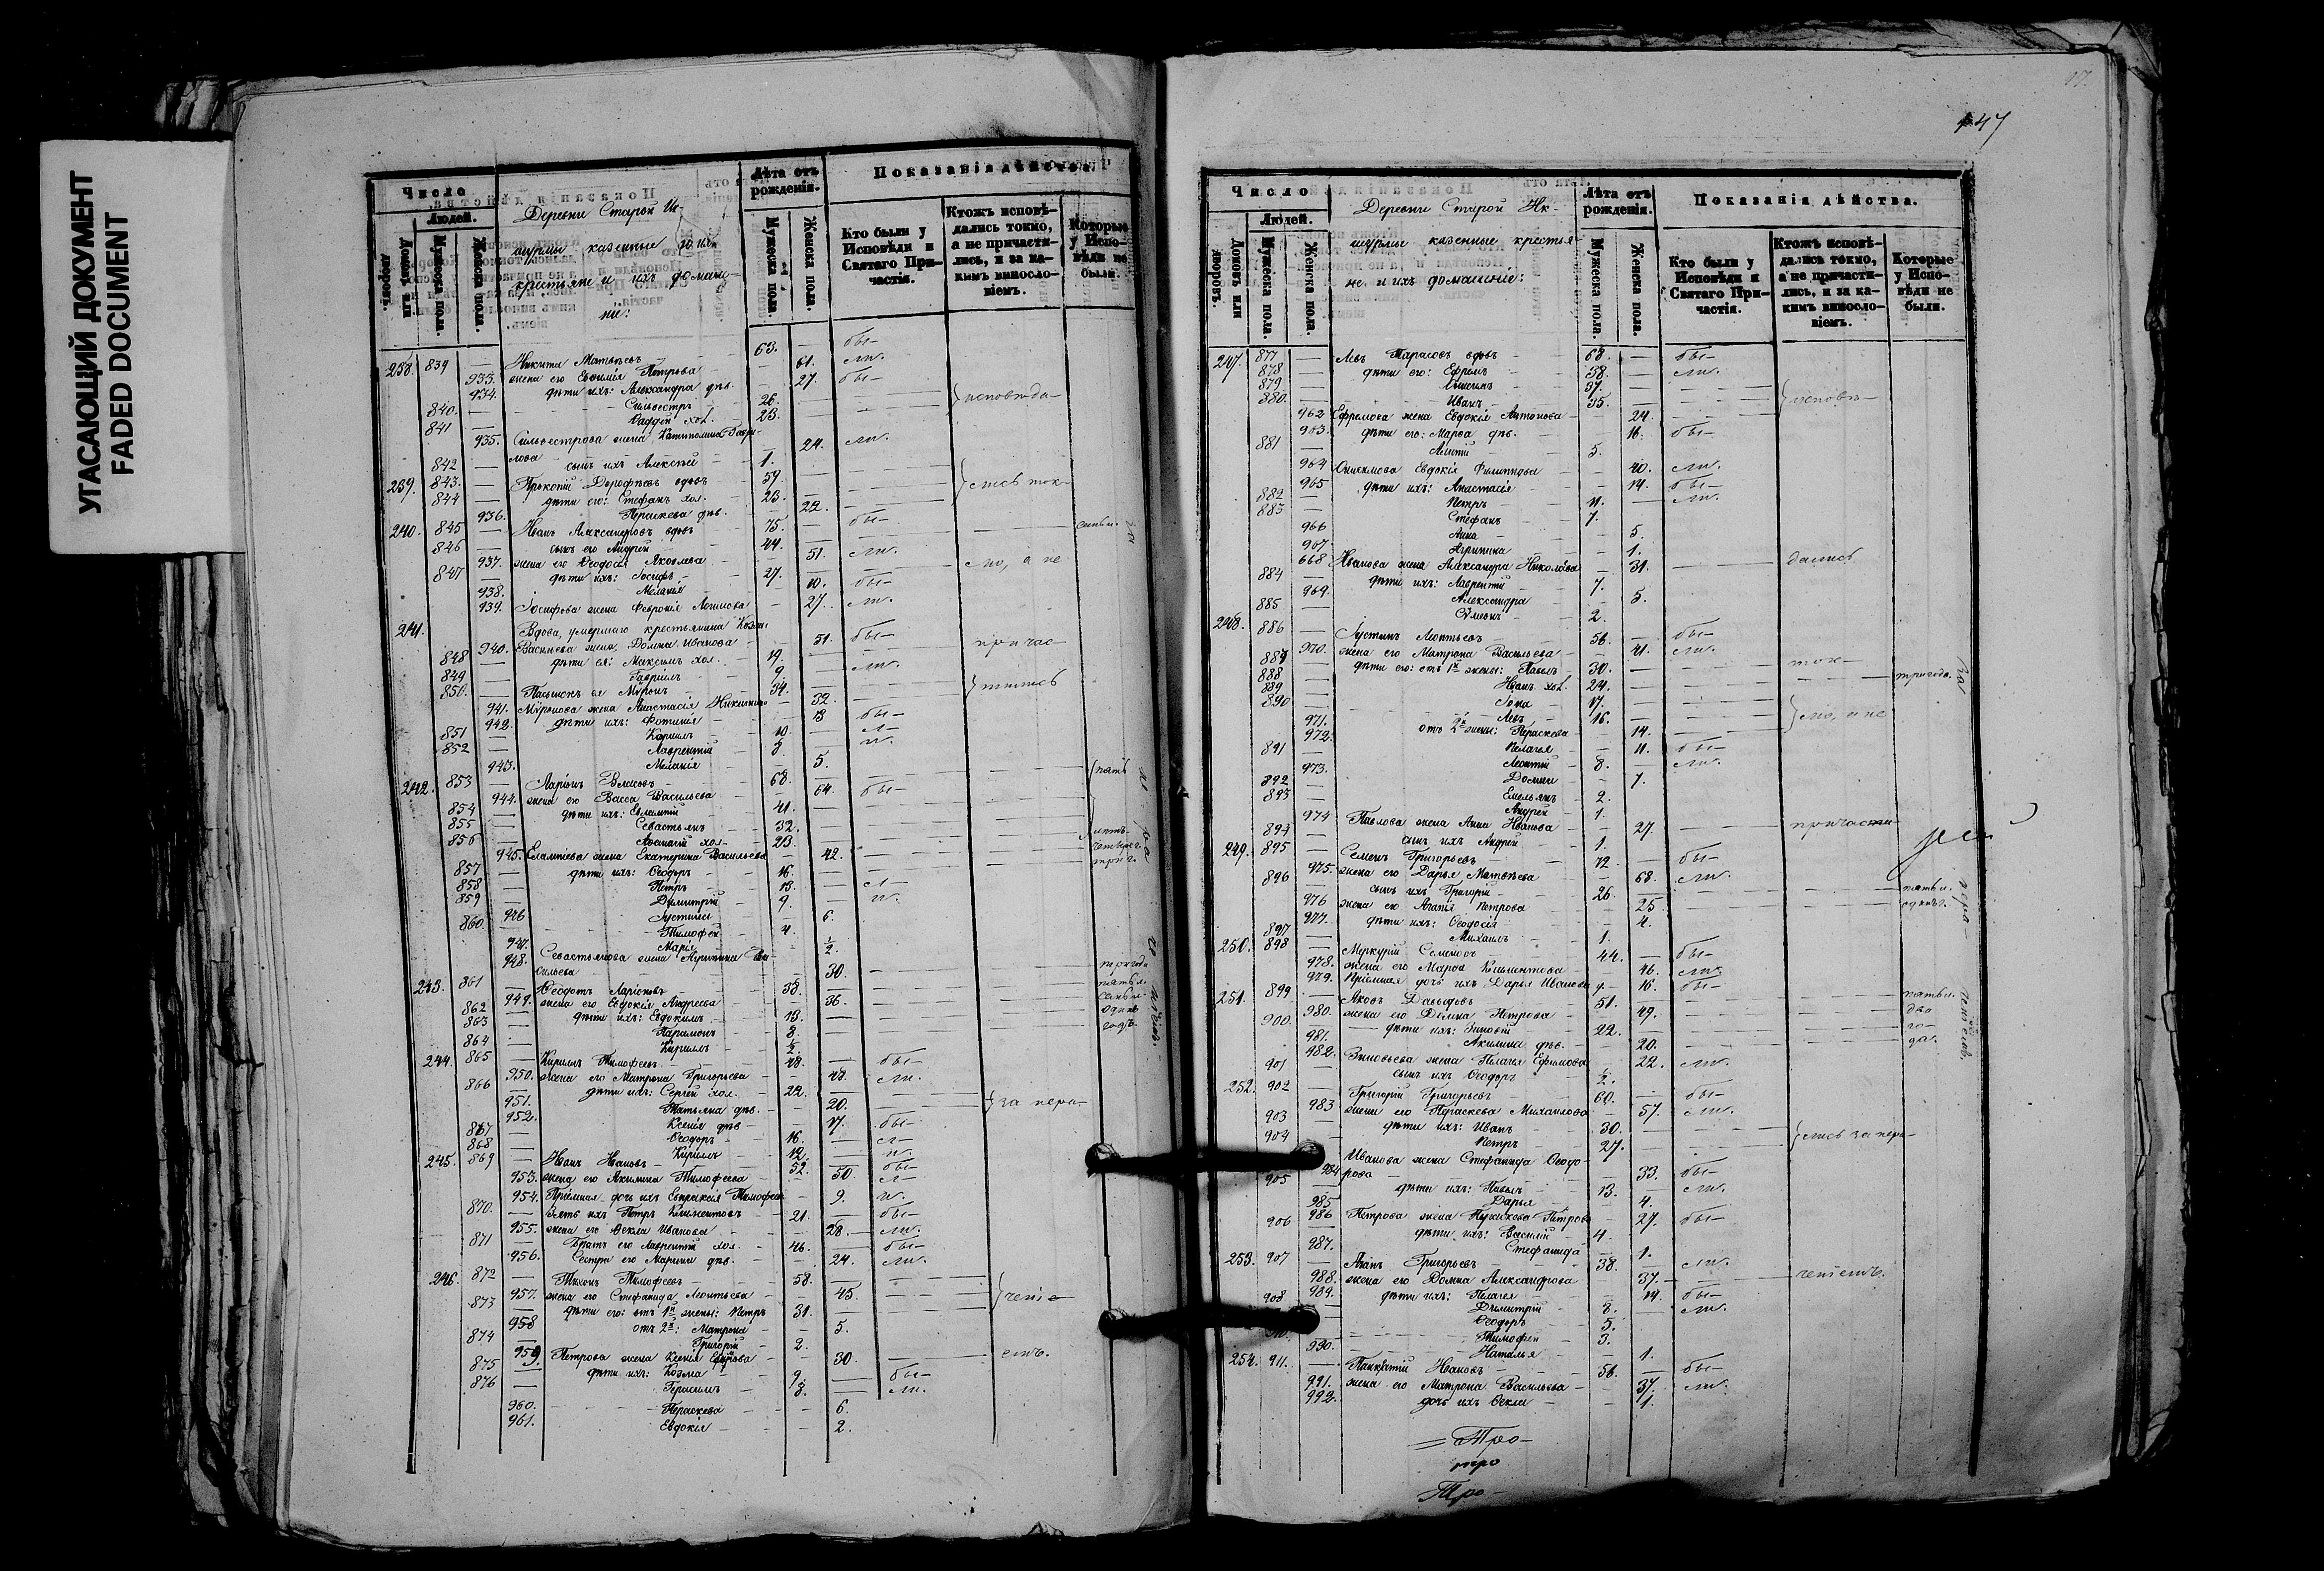 УГАСАЮЩИЙ ДОКУМЕНТ
FADED DOCUMENT
Число
Людей.
Домовъ или дворовъ.
Мужеска пола.
Женска пола.
Деревни Старой Ик-
шурмы казенные
крестьяне и ихъ домаш-
ніе:
Лѣта отъ рожденія.
Мужеска пола.
Женска пола.
Показанія дѣйства.
Кто были у Исповѣди и Святаго При-частія.
Ктожъ исповѣ-дались токмо, а не причасти-лись, и за ка-кимъ виносло-віемъ.
Которые у Испо-вѣди не были.
238. 839 — Никита Матвѣевъ 63. — бы-
933. жена его Евфимія Петрова 61. ли.
934. дѣти ихъ: Александра дѣв. 27. бы-
840. Сильвестръ 26. исповѣда-
841 Фаддей хол. 23.
935. Сильвестрова жена Капитолина Гаври-
лова 24. ли.
842 — сынъ ихъ Алексѣй 1.
239. 843. — Прокопій Дорофѣевъ вдовъ 59. лись ток-
844 — дѣти его: Стефанъ хол. 23.
936. Параскева дѣв. 22.
240. 845 — Иванъ Александровъ вдовъ 75. — бы-
846 — сынъ его Андрей 44.
937. жена его Ѳеодосія Яковлева 51. ли.
847 — дѣти ихъ: Іосифъ 27. мо, а не
938. Меланія 10. бы-
939. Іосифова жена Февронія Логинова 27. ли.
241. Вдова, умершаго крестьянина Козмы
940. Васильева жена, Домна Иванова 51. бы- причас-
848 — дѣти ея: Максимъ хол. 19.
849 — Гавріилъ 9. ли.
850. — Пасынокъ ея Мѵронъ 34. тились
941. Мѵронова жена Анастасія Никитина 32.
942. дѣти ихъ: Фотинія 13 бы-
851 — Кириллъ 10. л-
852 — Лаврентій 8. и.
943. Меланія 5.
242. 853 — Ларіонъ Власовъ 68. пять
944. жена его Васса Васильева 64. бы-
854 — дѣти ихъ: Евлампій 41.
855 — Севастьянъ 32.
856 — Аѳанасій хол. 23.
945. Евлампіева жена Екатерина Васильева 42.
857 — дѣти ихъ: Ѳеодоръ 16.
858 — Петръ 13. л-
859 — Димитрій 9. и.
946 Іустинія 6.
860. Тимофей 4.
947. Марія ½
948. Севастьянова жена Агрипина Ва-
сильева 30.
243. 861 — Ѳеодотъ Ларіоновъ 38.
949. жена его Евдокія Андреева 36.
862 — дѣти ихъ: Евдокимъ 13. одинъ
863 — Парамонъ 8. годъ.
864 — Кириллъ ½
244. 865 — Кириллъ Тимофеевъ 48. — бы-
950. жена его Матрона Григорьева 48. ли.
866 — дѣти ихъ: Сергей хол. 22.
951. Татьяна дѣв. 20. за пере-
952. Ксенія дѣв. 17. бы-
867 — Ѳеодоръ 16. л-
868 — Кириллъ 12. и.
245. 869 — Иванъ Ивановъ 52. бы-
953. жена его Акилина Тимофеева 50. л-
954. Пріемная дочь ихъ Евпраксія Тимофеева 9. и.
870. — Зять ихъ Петръ Климентовъ 21. бы-
955. жена его Ѳекла Иванова 28. ли.
871 — Братъ его Лаврентій хол. 46. бы-
956. Сестра его Марина дѣв. 24. ли.
246. 872 — Тихонъ Тимофеевъ 58.
957. жена его Стефанида Леонтьева 45. ченіе-
873 — дѣти его: отъ 1й жены: Петръ 31.
958 отъ 2й: Матрона 5.
874 — Григорій 2.
959. Петрова жена Ксенія 30. емъ.
875 — дѣти ихъ: Козма 9. бы-
876 — Герасимъ 8. ли.
960. Параскева 6.
961. Евдокія 2.
147
17.
Число
Людей.
Домовъ или дворовъ.
Мужеска пола.
Женска пола.
Деревни Старой Ик-
шурмы казенные крестья-
не и ихъ домашніе:
Лѣта отъ рожденія.
Мужеска пола.
Женска пола.
Показанія дѣйства.
Кто были у Исповѣди и Святаго При-частія.
Ктожъ исповѣ-дались токмо, а не причасти-лись, и за ка-кимъ виносло-віемъ.
Которые у Испо-вѣди не были.
247. 877 — Левъ Тарасовъ вдовъ 68. — бы-
878 — дѣти его: Ефремъ 58. — ли.
879 — Онисимъ 37.
880. — Иванъ 35. исповѣ-
962 Ефремова жена Евдокія Антонова 24.
963. дѣти его: Марѳа дѣв. 16. бы-
881 5.
964 Онисимова Евдокія Филиппова 40. ли.
965 дѣти ихъ: Анастасія 14. бы-
882 — Петръ 11. — ли.
883 — Стефанъ 7.
966 Анна 5.
967. Агрипина 1.
668 Иванова жена Александра Николаева 31. дались
884 — дѣти ихъ: Лаврентій 7.
969. Александра 5.
885 — Сѵмеонъ 2.
248. 886 — Іустинъ Леонтьевъ 56. — бы-
970. жена его Матрона Васильева 41. ли.
887 — дѣти его: отъ 1й жены: Павелъ 30. ток-
888 — Иванъ хол. 24.
889 — Іона 17.
890 — Левъ 16. мо, а не
971. отъ 2й жены: Параскева 14.
972. Пелагея 11. бы-
891 — Леонтій 8. — ли.
973. Домна 7.
892 — Емельянъ 2.
893 — Андрей 1.
974 Павлова жена Анна Иванова 27. причасти-
894 — сынъ ихъ Андрей 1.
249. 895 — Семенъ Григорьевъ 72. — бы-
975. жена его Дарья Матвѣева 68. ли.
896 — сынъ ихъ Григорій 26.
976 жена его Агапія Петрова 25.
977. дѣти ихъ: Ѳеодосія 4.
897 — Михаилъ 1.
250. 898 — Меркурій Семеновъ 44. — бы-
978. жена его Марѳа Климентова 46. ли.
979. Пріемная дочь ихъ Дарья Иванова 16. бы-
251. 899 — Яковъ Давыдовъ 51.
980. жена его Домна Петрова 49. два
900. — дѣти ихъ: Зиновій 22. го-
981. Акилина дѣв. 20. да.
982. Зиновьева жена Пелагея Ефимова 22. ли.
901 — сынъ ихъ Ѳеодоръ ½
252. 902 — Григорій Григорьевъ 60. — бы-
983 жена его Параскева Михаилова 57. ли.
903 — дѣти ихъ: Иванъ 30.
904 — Петръ 27. лись за пере-
984 Иванова жена Стефанида Ѳеодо-
рова 33. бы-
905 — дѣти ихъ: Павелъ 13. — ли.
985 Дарья 4.
986 Петрова жена Петрова 27. бы-
906 — дѣти ихъ: Василій 4.
987. Стефанида 1.
253. 907 — Агапъ Григорьевъ 38. — ли.
988. жена его Домна Александрова 37. ченіемъ.
989. дѣти ихъ: Пелагея 14. бы-
908 — Димитрій 8. — ли.
Ѳеодоръ 5.
910. Тимофей 3.
990. Наталья 1.
254. 911. — Панкратій Ивановъ 56. — бы-
991. жена его Матрона Васильева 37. ли.
992. дочь ихъ Ѳекла 1.
Про-
про
Про-